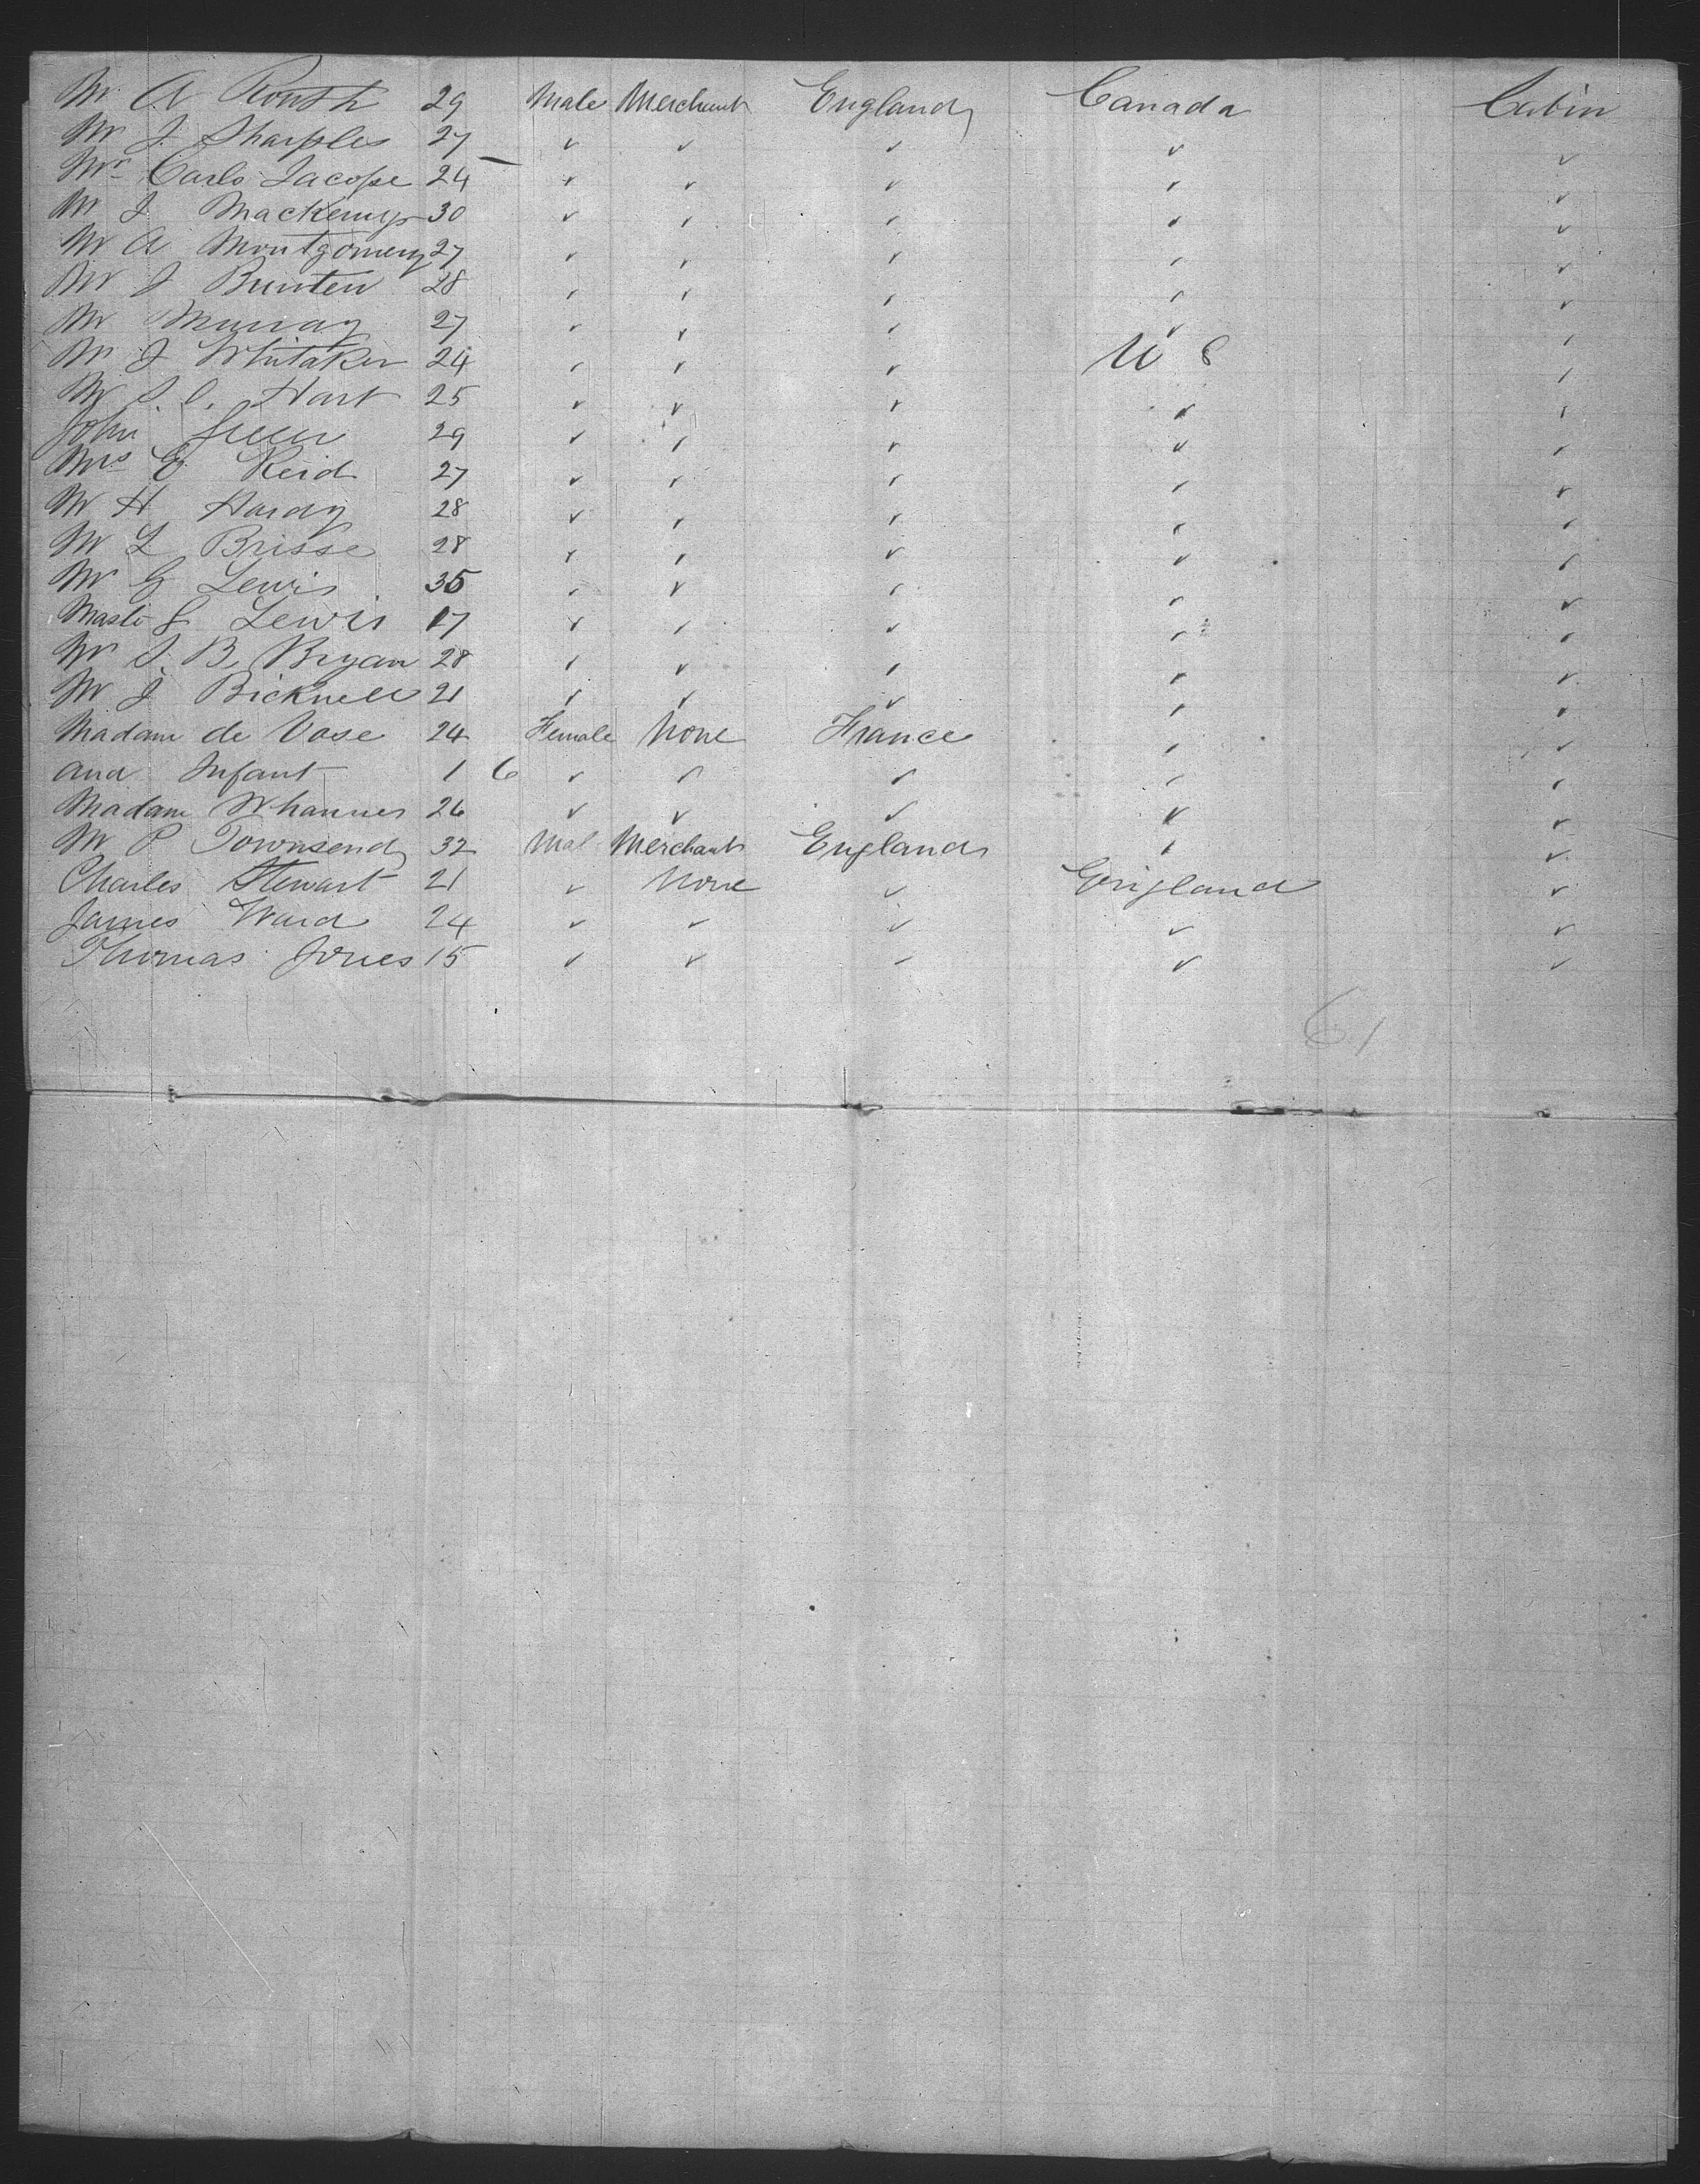 Mr A Routh 29 Male Merchant England Canada Cabin
Mr J. Sharples 27 " " " " "
Mr Carlo Jacope 24 " " " " "
Mr J Mackenzy 30 " " " " "
Mr A Montgomery 27 " " " " "
Mr J Bunten 28 " " " " "
Mr Murray 27 " " " " "
Mr J Whitaker 24 " " " U S "
Mr S. C. Hart 25 " " " " "
John Green 29 " " " " "
Mrs E Reid 27 " " " " "
Mr H Hardy 28 " " " " "
Mr L Brisse 28 " " " " "
Mr G Lewis 35 " " " " "
Mastr G Lewis 17 " " " " "
Mr J. B. Bryan 28 " " " " "
Mr J Bicknell 21 " " " " "
Madam de Vose 24 Female None France " "
and Infant 1 6 " " " " "
Madam Whannes 26 " " " " "
Mr P Townsend 32 Mal Merchant England " "
Charles Stewart 21 " None " England "
James Ward 24 " " " " "
Thomas Jones 15 " " " " "
61